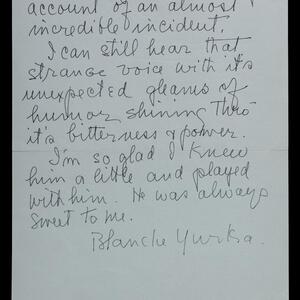 account of an almost
incredible incident.
I can still hear that
strange voice with it's
unexpected gleams of
humor shining thro
it's bitterness & power.
I'm so glad I knew
him a little and played
with him. He was always
sweet to me.
Blanche Yurka.